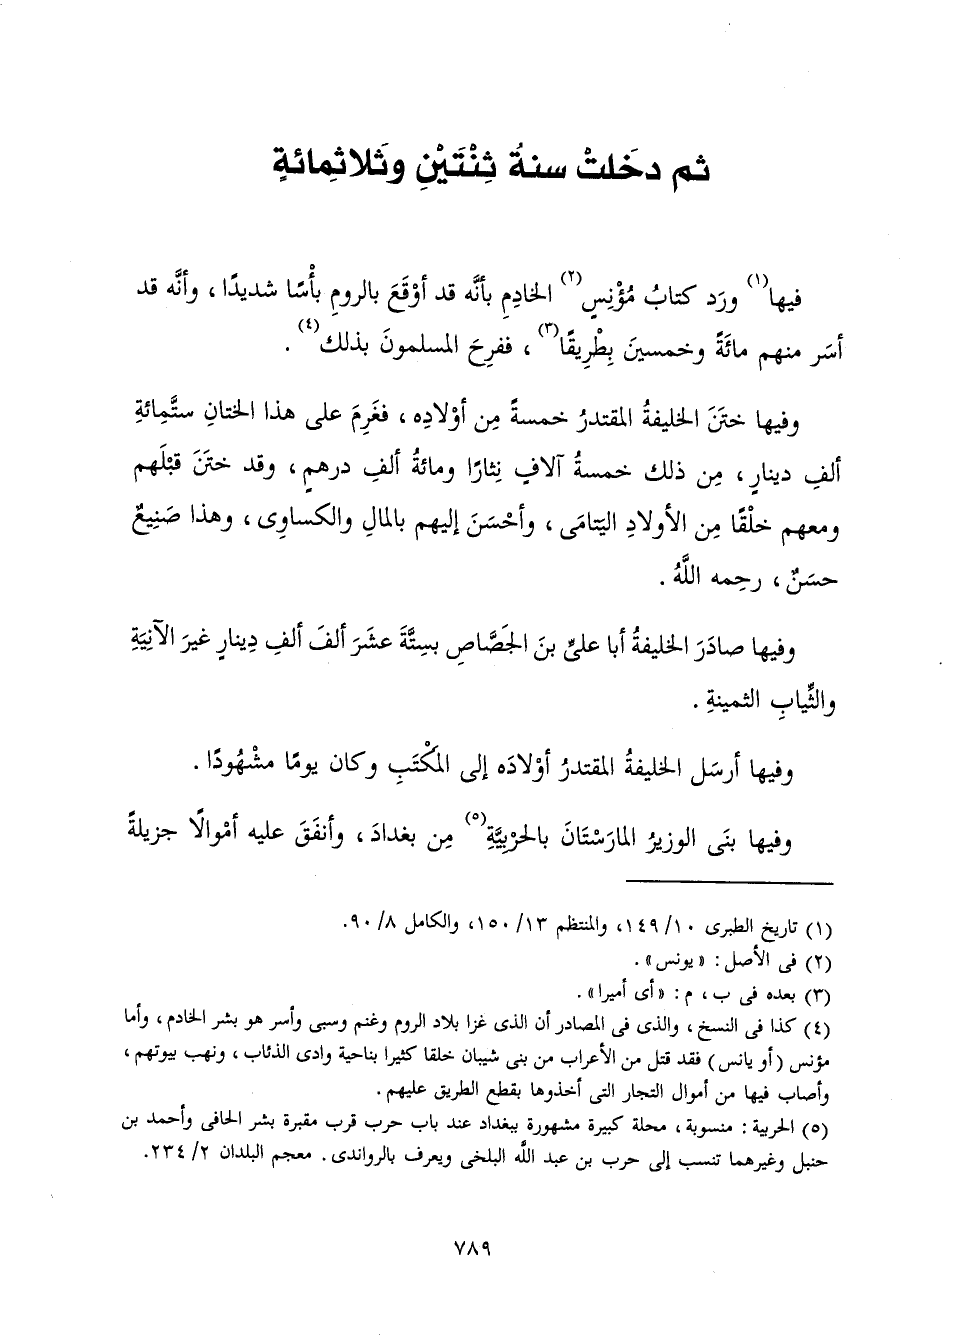 ثم دخَلتْ سنةُ ثِنْتَيْنِ وثَلاثِمائةٍ
فيها(١) ورَد كتابُ مُؤْنِسٍ(٢) الخادِمِ بأنَّه قد أوْقَعَ بالرومِ بأْسًا شديدًا ، وأنَّه قد
أسَر منهم مائَةً وخمسينَ بِطْرِيقًا(٣) ، ففرِحَ المسلمونَ بذلك(٤) .
وفيها ختَنَ الخليفةُ المقتدرُ خمسةً مِن أوْلادِه ، فغَرِمَ على هذا الختانِ ستَّمِائةِ
ألفِ دينارٍ ، مِن ذلك خمسةُ آلافٍ نِثارًا ومائةُ ألفِ درهمٍ ، وقد ختَنَ قبْلَهم
ومعهم خلْقًا مِن الأولادِ اليَتامَى ، وأحْسَنَ إليهم بالمالِ والكساوِى ، وهذا صَنِيعٌ
حسَنٌ ، رحِمه اللَّهُ .
وفيها صادَرَ الخليفةُ أبا علىِّ بنَ الجَصَّاصِ بسِتَّةَ عشَرَ ألفَ ألفِ دِينارٍ غيرَ الآنِيَةِ
والثِّيابِ الثمينةِ .
وفيها أرسَل الخليفةُ المقتدرُ أوْلادَه إلى المَكْتَبِ وكان يومًا مشْهُودًا .
وفيها بنَى الوزيرُ المارَسْتَانَ بالحَرْبِيَّةِ(٥) مِن بغدادَ ، وأنفَقَ عليه أمْوالًا جزيلةً
(١) تاريخ الطبرى ١٠/ ١٤٩، والمنتظم ١٣/ ١٥٠، والكامل ٨/ ٩٠.
(٢) فى الأصل : « يونس » .
(٣) بعده فى ب ، م : « أى أميرا » .
(٤) كذا فى النسخ ، والذى فى المصادر أن الذى غزا بلاد الروم وغنم وسبى وأسر هو بشر الخادم ، وأما
مؤنس ( أو يانس ) فقد قتل من الأعراب من بنى شيبان خلقا كثيرا بناحية وادى الذئاب ، ونهب بيوتهم ،
وأصاب فيها من أموال التجار التى أخذوها بقطع الطريق عليهم .
(٥) الحربية : منسوبة ، محلة كبيرة مشهورة ببغداد عند باب حرب قرب مقبرة بشر الحافى وأحمد بن
حنبل وغيرهما تنسب إلى حرب بن عبد اللَّه البلخى ويعرف بالرواندى . معجم البلدان ٢/ ٢٣٤.
٧٨٩